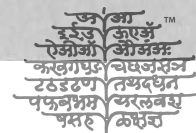 अ आ ™
इईउ ऊए
ऐओऔ अंअः
कखगघङ चछजझञ
टठडढण तथदधन
पफबभम यरलवश
षसह ळक्षज्ञ